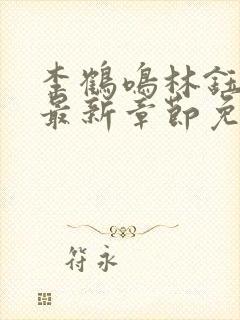 李鹤鸣林钰
最新章节免
符永